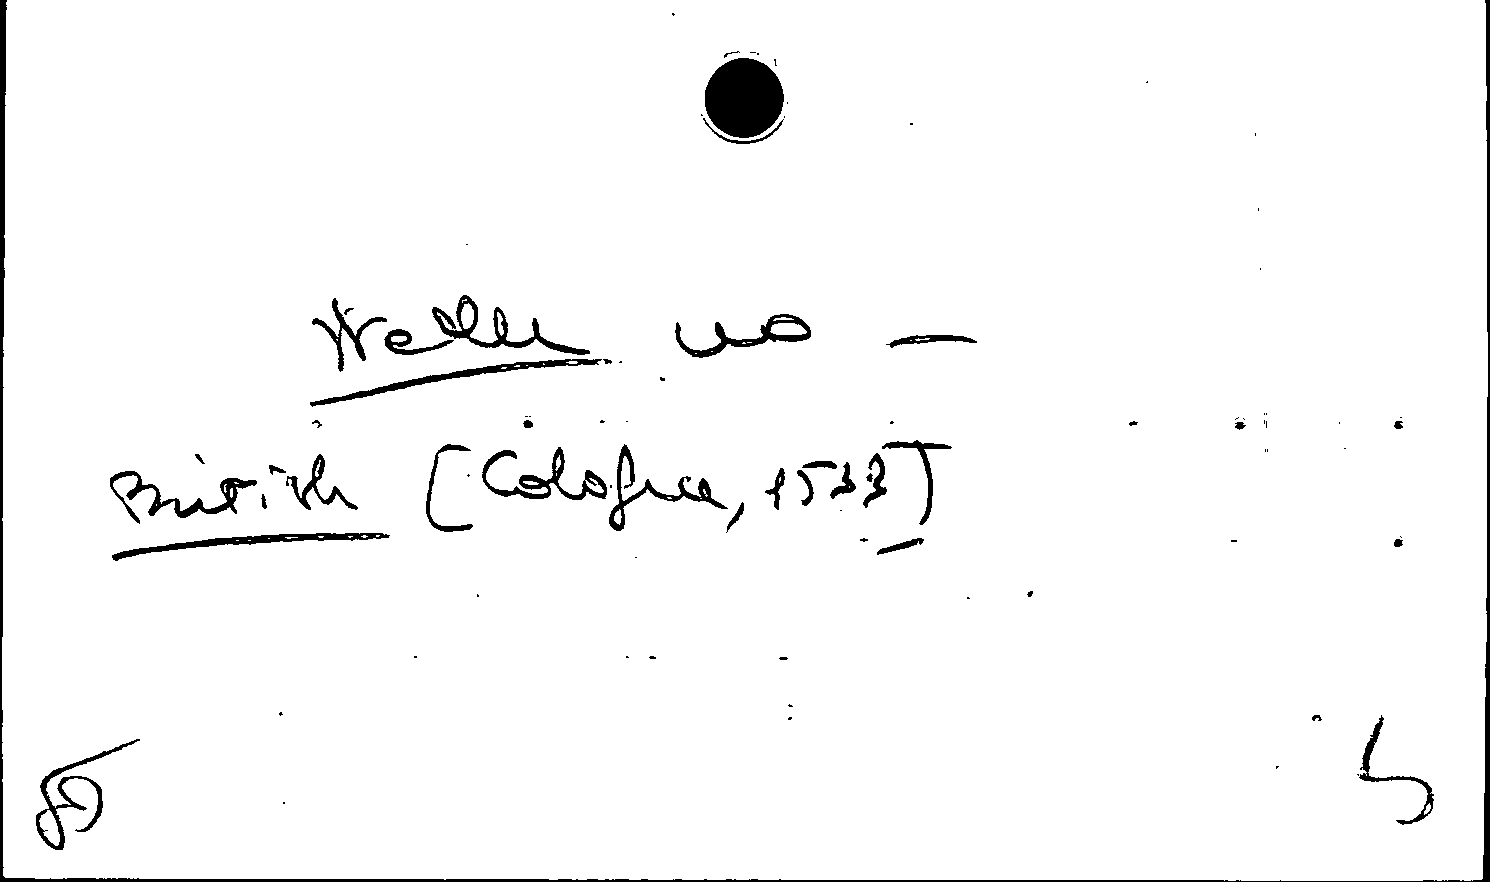 Weller no —
British [Cologne, 1533]